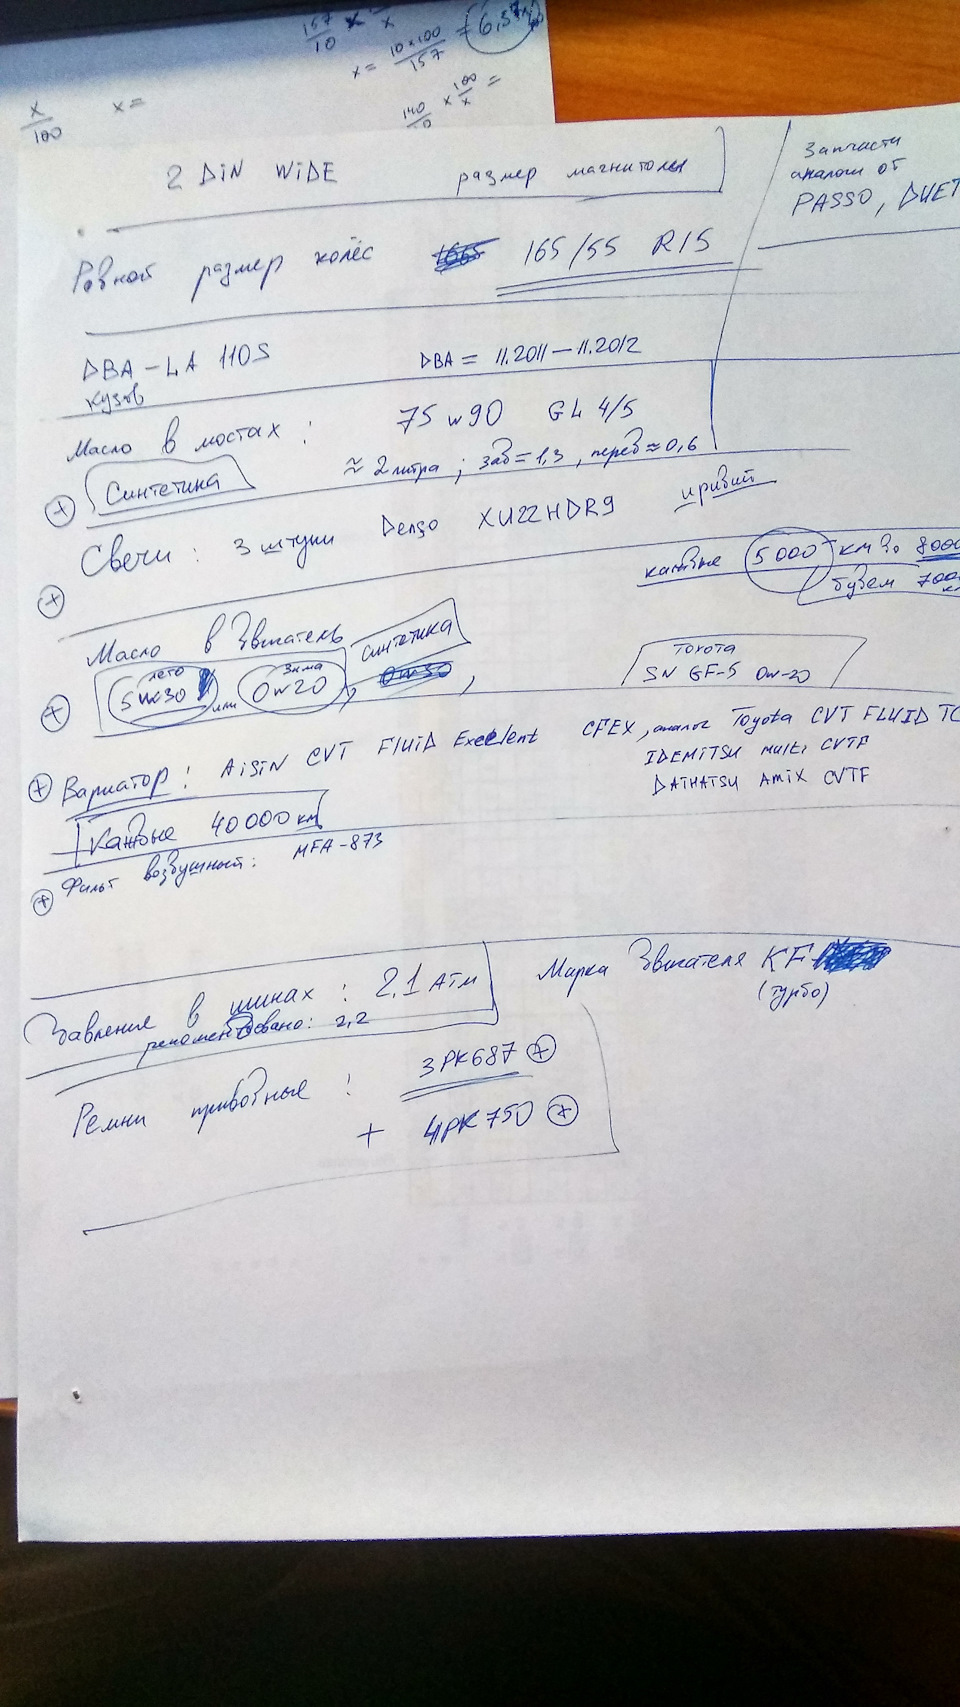 157/10 x
x = 10x100/157 = 6,37
x/100 x =
140/10 x 100/x =
2 DIN WIDE размер магнитолы
Запчасти
аналоги от
PASSO, DUET
Ровной размер колёс 165/55 R15
DBA - LA 110S DBA = 11.2011 — 11.2012
кузов
Масло в мостах : 75w90 GL 4/5
≈ 2 литра ; зад = 1,3 , перед ≈ 0,6
+ Синтетика
Свечи : 3 штуки Denso XU22HDR9 иридий
+
каждые 5 000 км
будем
Масло в двигатель синтетика
+ лето 5w30 или зима 0w20 ,
Toyota
SN GF-5 0w-20
+ Вариатор : AISIN CVT FLUID Excellent CFEX , аналог Toyota CVT FLUID TC
IDEMITSU multi CVTF
DAIHATSU AMIX CVTF
Каждые 40 000 км
+ Фильт воздушный : MFA-873
Давление в шинах : 2,1 Атм
рекомендовано : 2,2
Марка двигателя KF
(турбо)
Ремни приводные : 3PK687 +
+ 4PK750 +